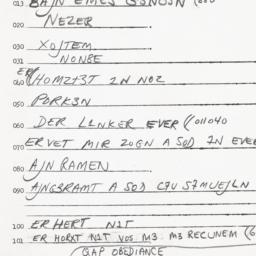 013 BAJN EMES
020 NEZER
030 XOJTEM
031 NONBE
040 HOMZTZT IN NOZ
050 PORKSN
060 DER LINKER EVER (011040
070 ERVET MIR ZOGN A SOD IN EVER
080 AJN RAMEN
090 AJNGERAMT A SOD
100 ER HERT NIT
101 ER HORXT NIT VOS M3 M3 RECUNEM (6
GAP OBEDIANCE